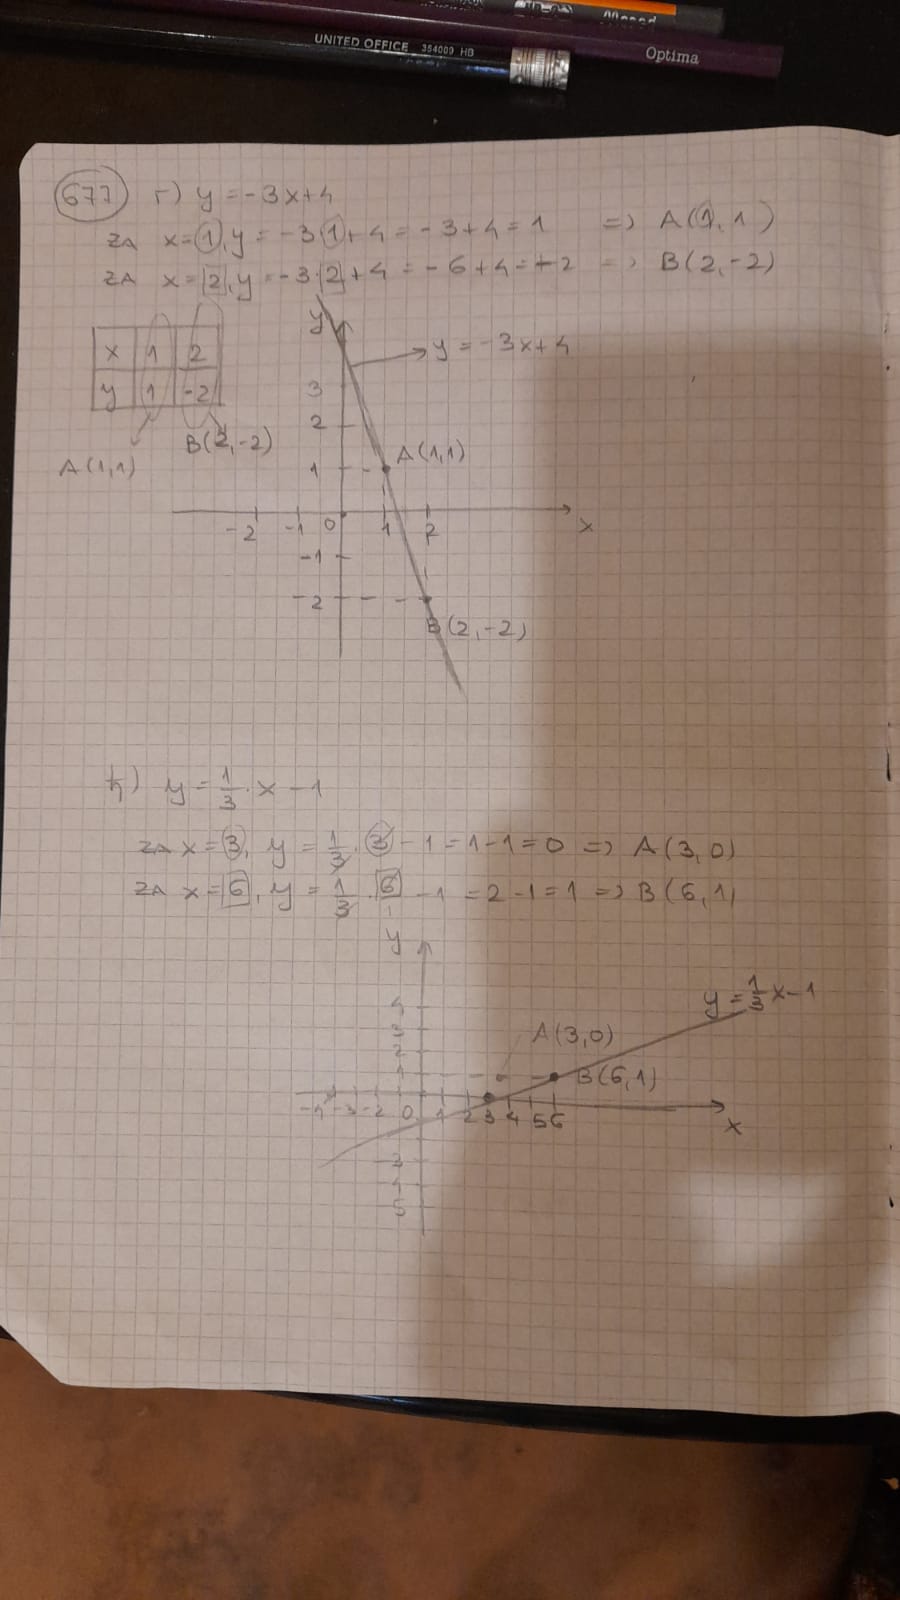 Mased
UNITED OFFICE 354009 HB
Optima
677 г) y = -3x+4
ZA x=1, y = -3·1+4 = -3+4 = 1 => A(1,1)
ZA x=2, y = -3·2+4 = -6+4 = -2 => B(2,-2)
x 1 2
y 1 -2
A(1,1) B(2,-2)
y
y = -3x+4
3
2
1 A(1,1)
-2 -1 0 1 2 x
-1
-2
B(2,-2)
ђ) y = 1/3 · x - 1
ZA x=3, y = 1/3 · 3 - 1 = 1-1 = 0 => A(3,0)
ZA x=6, y = 1/3 · 6 - 1 = 2-1 = 1 => B(6,1)
y
y = 1/3 x-1
A(3,0)
2
1 B(6,1)
-3 -2 0 1 2 3 4 5 6 x
5